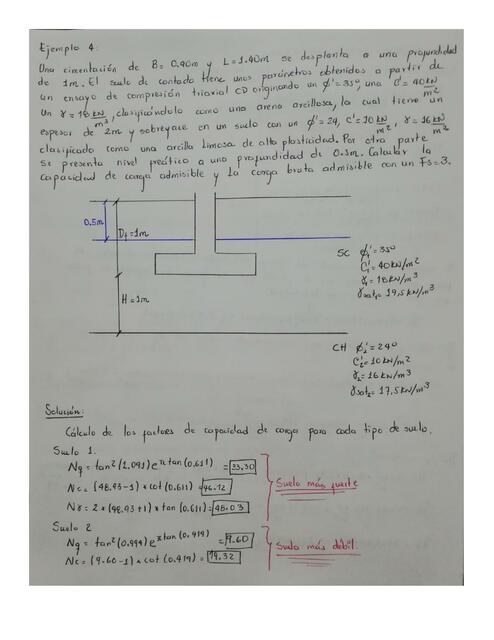 Ejemplo 4:
Una cimentación de B= 0.90m y L=1.40m se desplanta a una profundidad
de 1m. El suelo de contado tiene unos parámetros obtenidos a partir de
un ensayo de compresión triaxial CD originando un ϕ'=35°, una C'= 40 kN/m²
Un γ = 18 kN/m³, clasificándolo como una arena arcillosa, la cual tiene un
espesor de 2m y sobreyace en un suelo con un ϕ'=24, C'=10 kN/m², γ=16 kN/m³
clasificado como una arcilla limosa de alta plasticidad. Por otra parte
se presenta nivel freático a una profundidad de 0.5m. Calcular la
capacidad de carga admisible y la carga bruta admisible con un Fs=3.
0.5m
Df=1m
H=1m
SC ϕ1'=35°
C1'=40kN/m²
γ1=18kN/m³
γsat1=19,5 kN/m³
CH ϕ2'=24°
C2'=10kN/m²
γ2=16kN/m³
γsat2=17,5kN/m³
Solución:
Cálculo de los factores de capacidad de carga para cada tipo de suelo.
Suelo 1.
Nq = tan²(1.091)e^π tan(0.611) = 33.30
Nc = (48.93-1) * cot(0.611) = 46.12
Nγ = 2*(48.93+1)*tan(0.611) = 48.03
Suelo más fuerte
Suelo 2
Nq = tan²(0.994)e^π tan(0.419) = 9.60
Nc = (9.60-1) * cot(0.419) = 19.32
Suelo más débil.